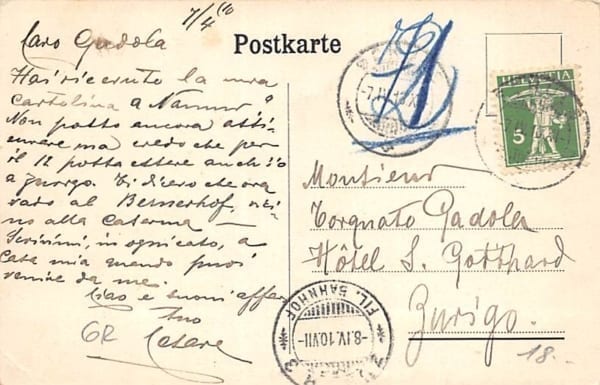 7/4 10
Caro Gadola
Hai ricevuto la mia
cartolina a Namur?
Non posso ancora assi-
curare ma credo che per
il 12 possa essere anch'io
a Zurigo. Ti dico che ora
vado al Bernerhof, vici-
no alla Caserma —
Scrivimi, in ogni caso, a
casa mia quando puoi
venire da me.
Ciao e buoni affari
tuo
Cesare
GR
Postkarte
HELVETIA
5
Monsieur
Torquato Gadola
Hôtel S. Gotthard
Zurigo.
18.-
FIL. BAHNHOF
-8.IV.10.VII-